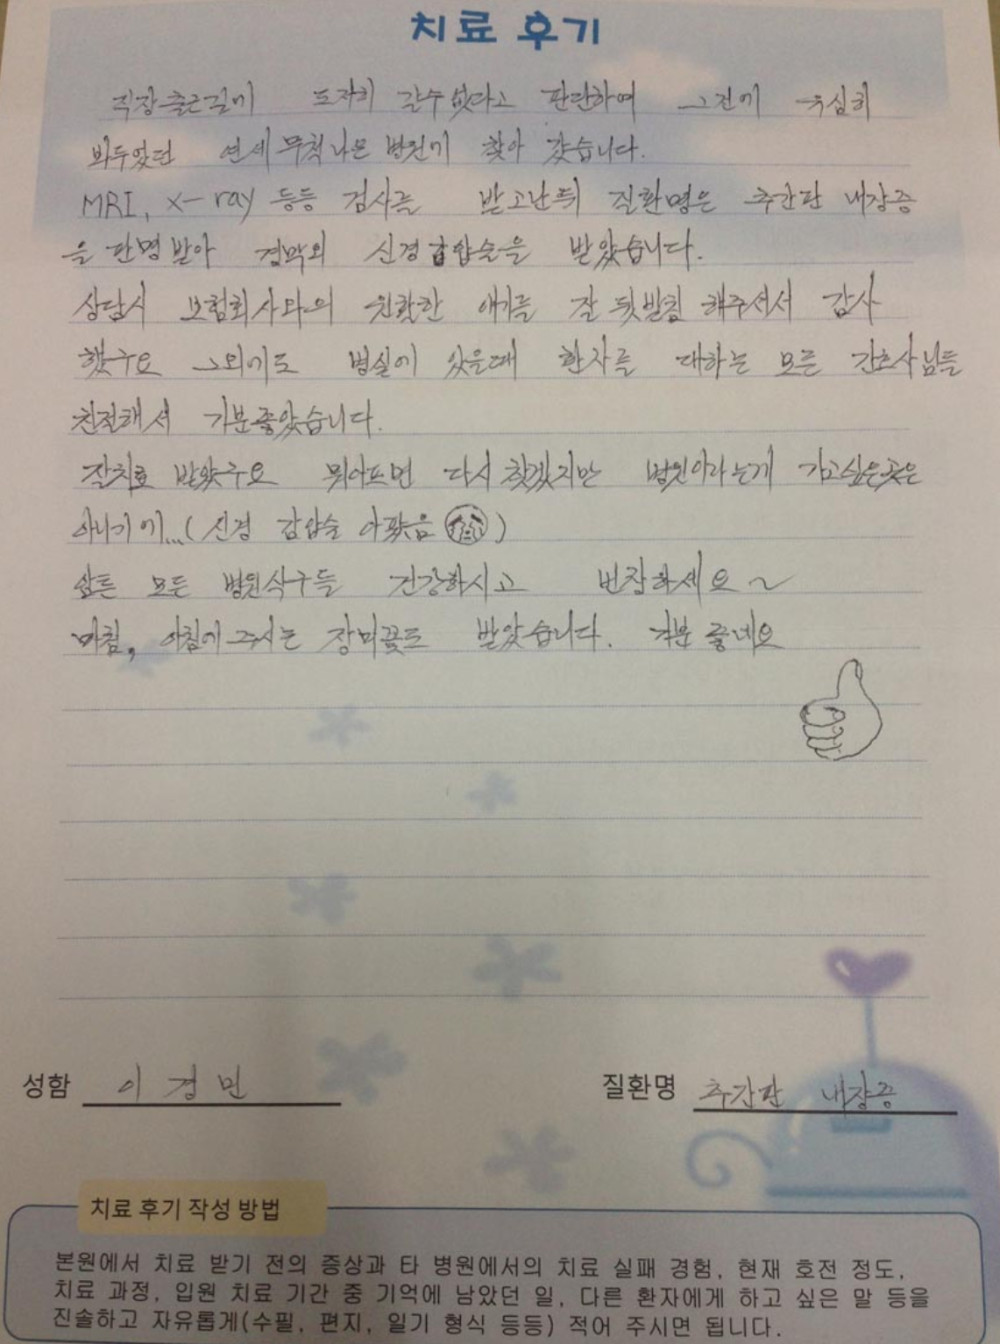 치료 후기
직장출근길에 도저히 갈수 없다고 판단하여 그전에 유심히
봐두었던 연세무척나은 병원에 찾아 갔습니다.
MRI, X-ray 등등 검사를 받고난뒤 질환명은 추간판 내장증
을 판명받아 경막외 신경감압술을 받았습니다.
상담시 보험회사와의 원활한 얘기를 잘 뒷받침 해주셔서 감사
했구요 그외에도 병실에 있을때 환자를 대하는 모든 간호사님들
친절해서 기분좋았습니다.
잘치료 받았구요 뭐아프면 다시 찾겠지만 병원이라는게 가고싶은곳은
아니기에...(신경 감압술 아팠음)
암튼 모든 병원식구들 건강하시고 번창하세요~
마침, 아침에 주시는 장미꽃도 받았습니다. 기분 좋네요
성함 이경민
질환명 추간판 내장증
치료 후기 작성 방법
본원에서 치료 받기 전의 증상과 타 병원에서의 치료 실패 경험, 현재 호전 정도,
치료 과정, 입원 치료 기간 중 기억에 남았던 일, 다른 환자에게 하고 싶은 말 등을
진솔하고 자유롭게(수필, 편지, 일기 형식 등등) 적어 주시면 됩니다.